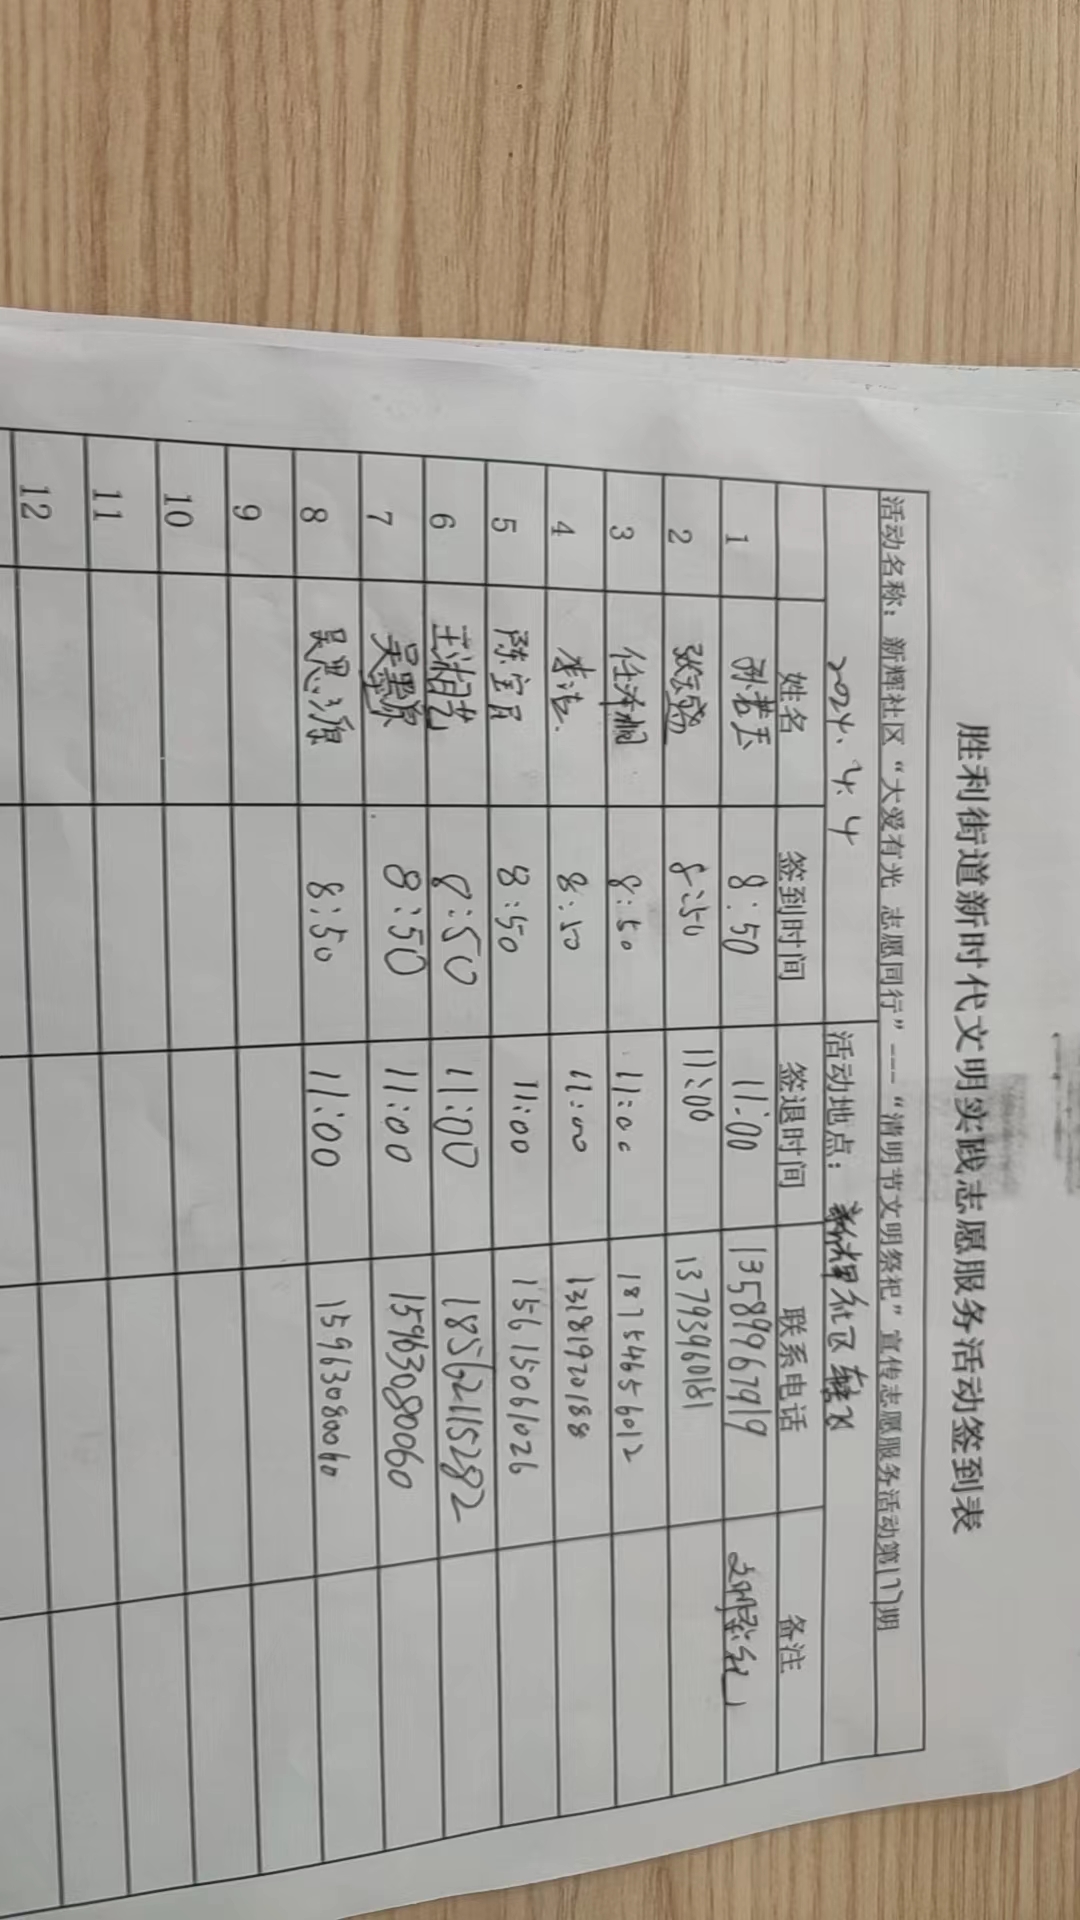 胜利街道新时代文明实践志愿服务活动签到表
活动名称：新辉社区“大爱有光 志愿同行”---“清明节文明祭祀”宣传志愿服务活动第17期
2024.4.4 活动地点：新辉社区辖区
姓名 签到时间 签退时间 联系电话 备注
1 孙若玉 8:50 11:00 13589967919 文明祭祀
2 8:50 11:00 13793960181
3 任泽桐 8:50 11:00 18754656012
4 李浩 8:50 11:00 13181920188
5 陈宝月 8:50 11:00 15615061026
6 王湘艺 8:50 11:00 18562115282
7 吴墨源 8:50 11:00 15963080060
8 吴思源 8:50 11:00 15963080060
9
10
11
12